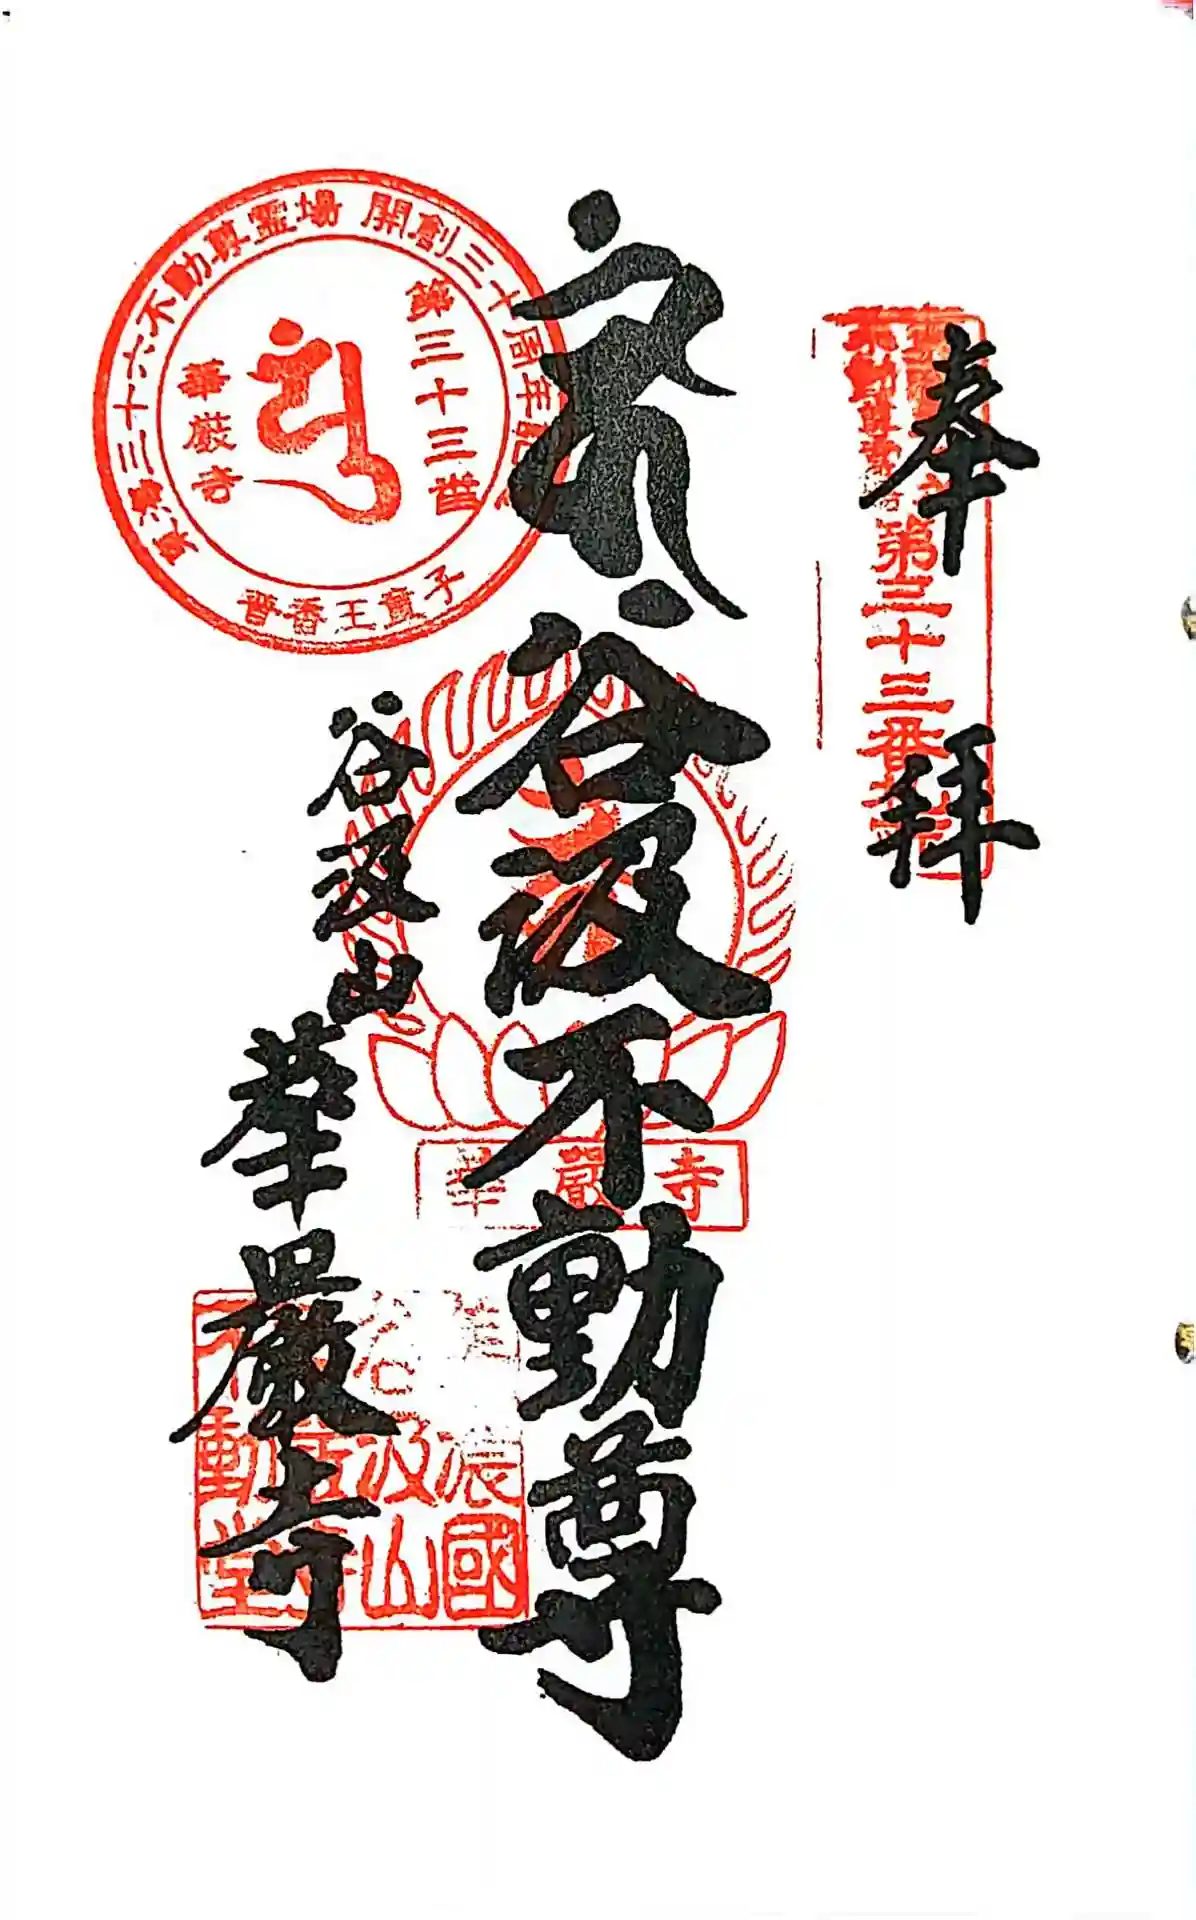 奉拝
第三十三番
谷汲不動尊
谷汲山
華嚴寺
東海三十六不動尊霊場 開創三十周年記
第三十三番
華厳寺
普香王童子
華嚴寺
濃國
谷汲山
動堂